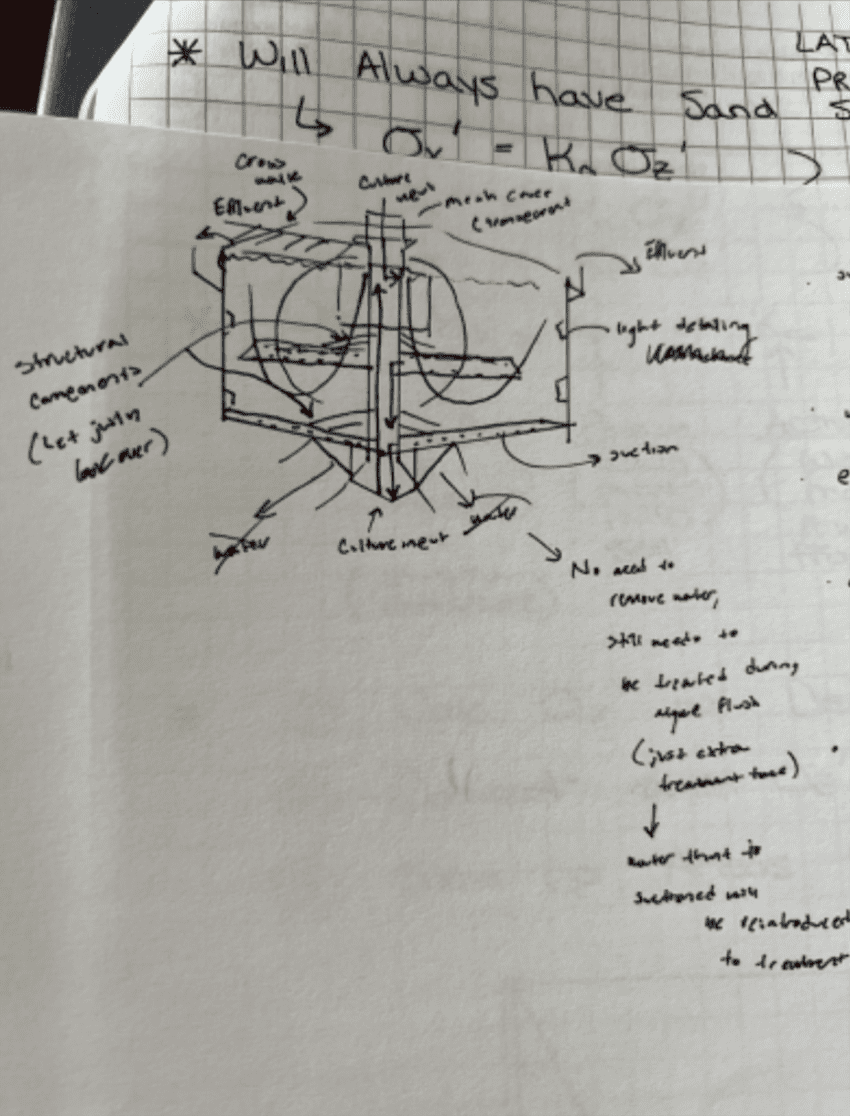 * Will Always have Sand
↳ σv' = Ka σz' )
LAT
PR
S
Cross
walk
Effluent
Culture
mesh cover
(transparent
Effluent
light detailing
Structural
components
(Let Justin
look over)
suction
water
Culture input
water
No need to
remove water,
still needs to
be treated during
algae flush
(just extra
treatment time)
water that is
suctioned will
be reintroduced
to treatment